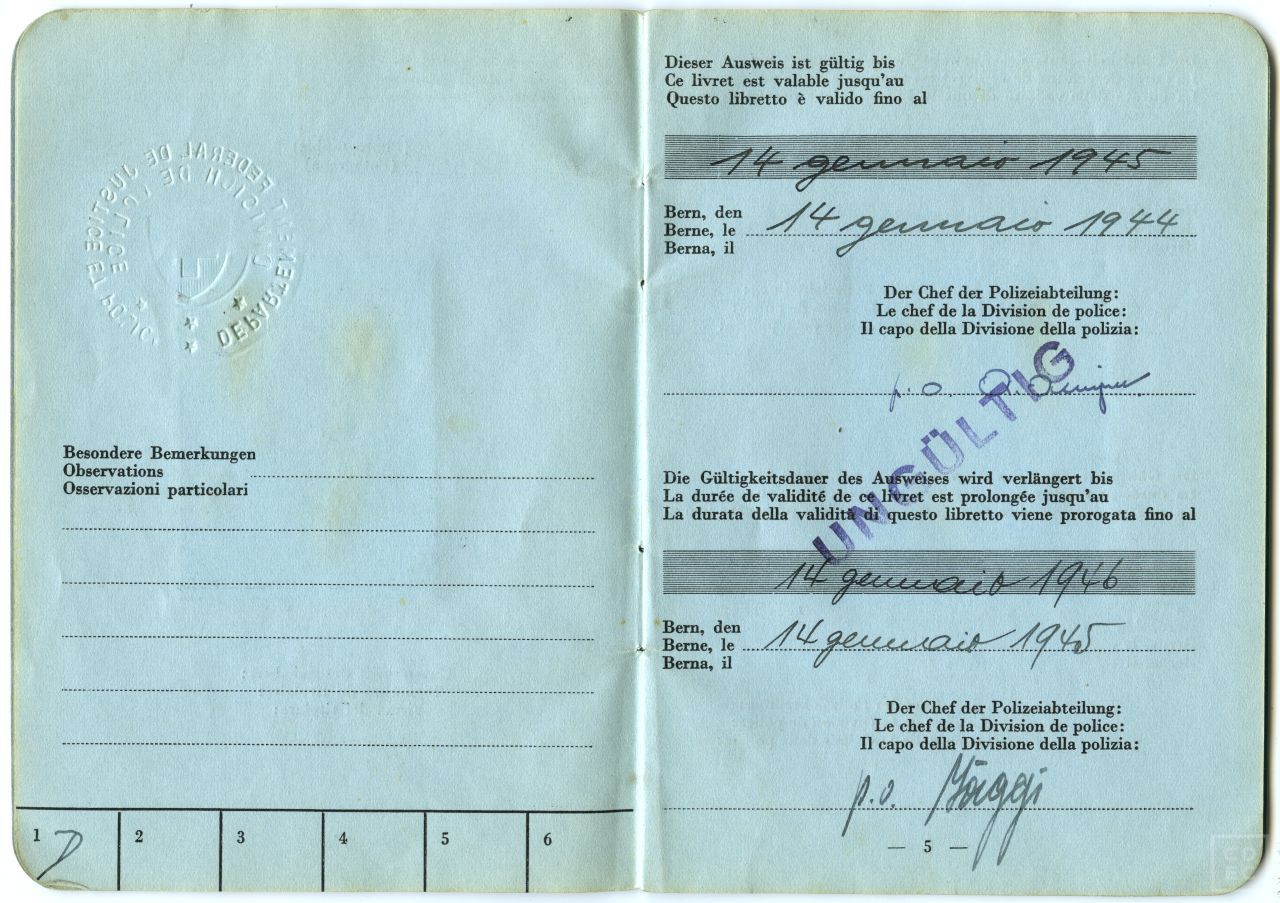 DEPARTEMENT FEDERAL DE JUSTICE ET POLICE
DIVISION DE POLICE
Besondere Bemerkungen
Observations
Osservazioni particolari
1
2
3
4
5
6
Dieser Ausweis ist gültig bis
Ce livret est valable jusqu'au
Questo libretto è valido fino al
14 gennaio 1945
Bern, den
Berne, le 14 gennaio 1944
Berna, il
Der Chef der Polizeiabteilung:
Le chef de la Division de police:
Il capo della Divisione della polizia:
p.o.
UNGÜLTIG
Die Gültigkeitsdauer des Ausweises wird verlängert bis
La durée de validité de ce livret est prolongée jusqu'au
La durata della validità di questo libretto viene prorogata fino al
14 gennaio 1946
Bern, den
Berne, le 14 gennaio 1945
Berna, il
Der Chef der Polizeiabteilung:
Le chef de la Division de police:
Il capo della Divisione della polizia:
p.o. Jäggi
— 5 —